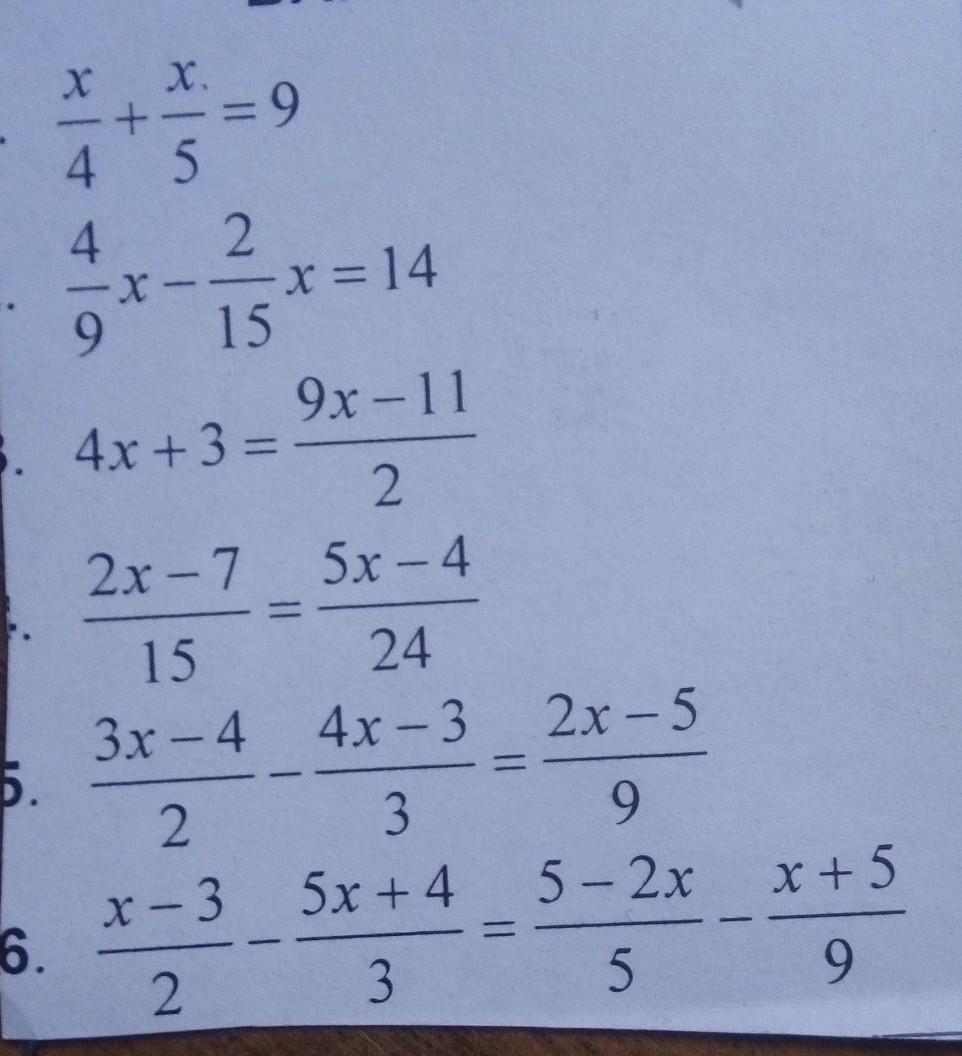 x/4 + x/5 = 9
4/9 x − 2/15 x = 14
4x + 3 = (9x − 11)/2
(2x − 7)/15 = (5x − 4)/24
5. (3x − 4)/2 − (4x − 3)/3 = (2x − 5)/9
6. (x − 3)/2 − (5x + 4)/3 = (5 − 2x)/5 − (x + 5)/9